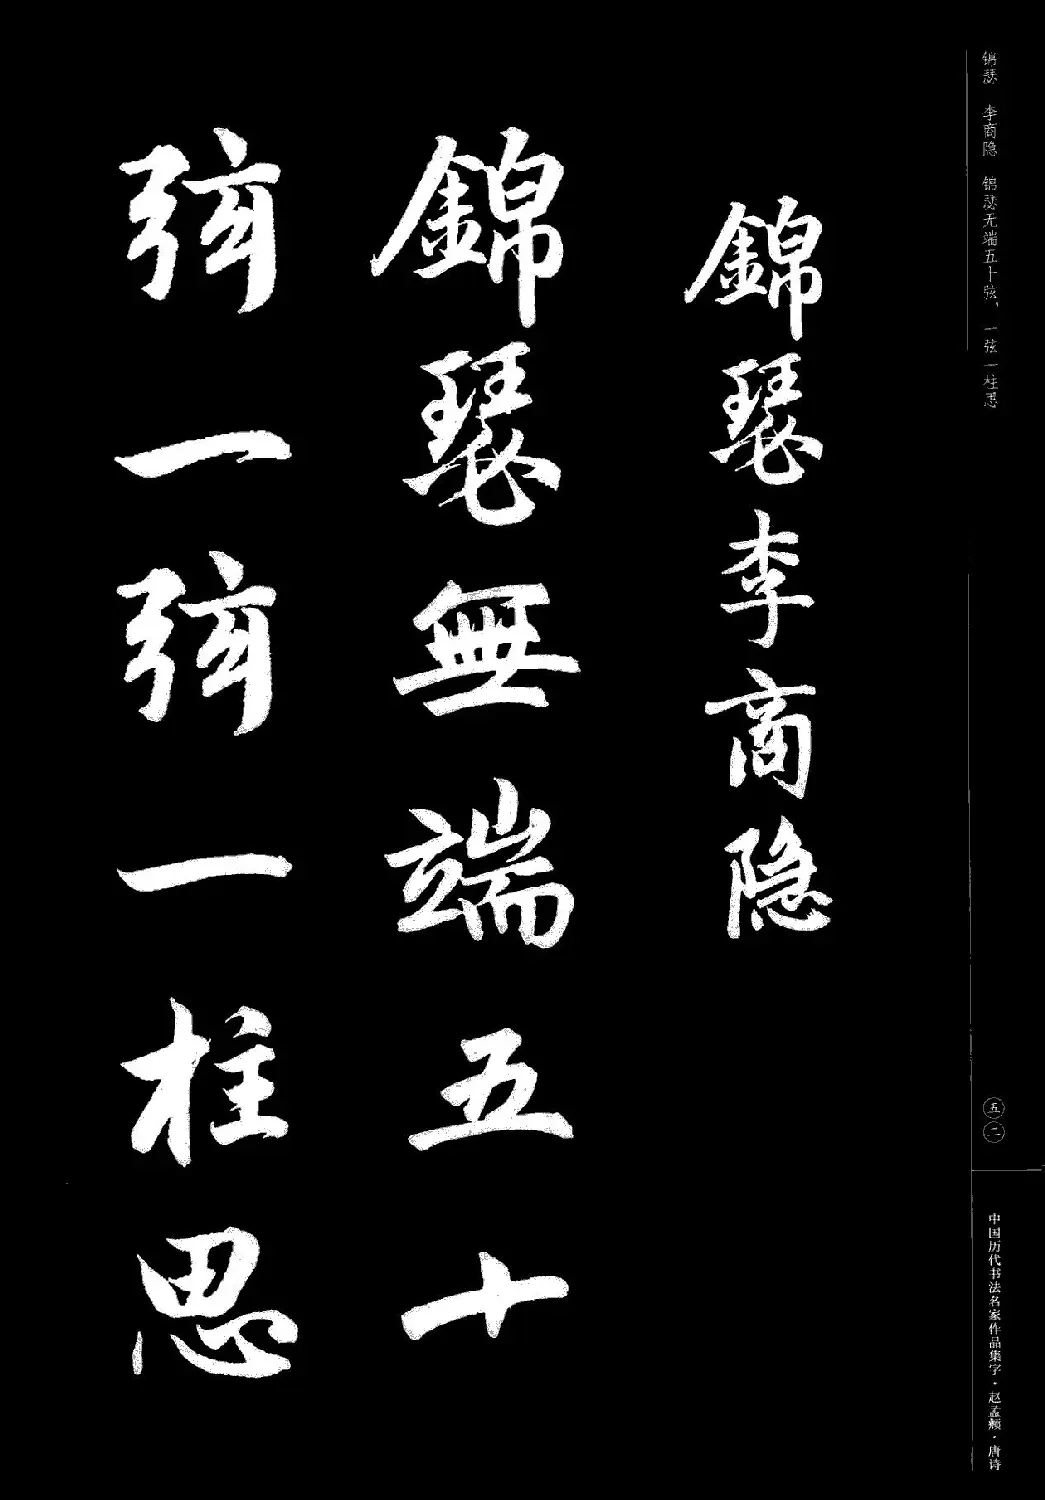 锦瑟 李商隐 锦瑟无端五十弦，一弦一柱思
錦瑟李商隐
錦瑟無端五十
弦一弦一柱思
五二
中国历代书法名家作品集字·赵孟頫·唐诗